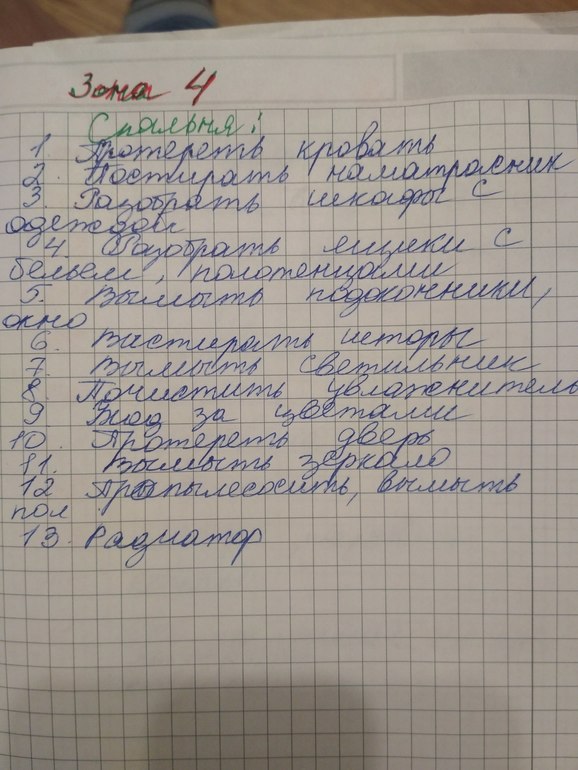 Зона 4
Спальня:
1. Протереть кровать
2. Постирать наматрасник
3. Разобрать шкафы с
одеждой
4. Разобрать ящики с
бельем, полотенцами
5. Вымыть подоконники,
окно
6. Вастирать шторы
7. Вымыть светильник
8. Почистить увлажнитель
9 Уход за цветами
10. Протереть дверь
11. Вымыть зеркало
12 Пропылесосить, вымыть
пол
13. Радиатор